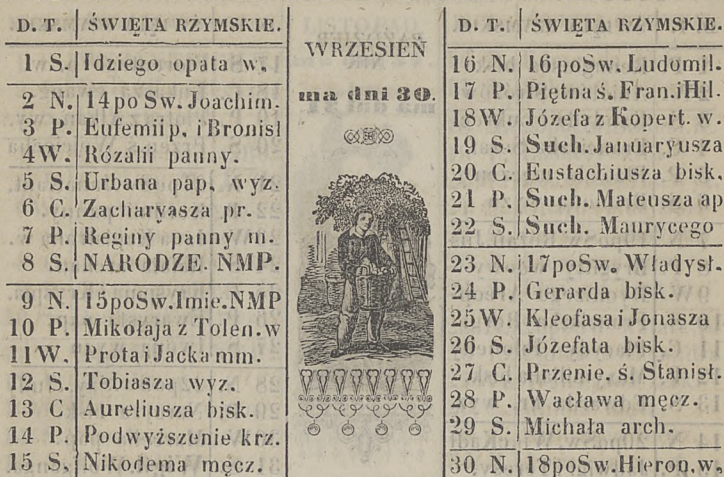 D. T. ŚWIĘTA RZYMSKIE.
1 S. Idziego opata w.
2 N. 14 po Sw. Joachim.
3 P. Eufemii p. i Bronisl
4 W. Rózalii panny.
5 S. Urbana pap. wyz.
6 C. Zacharyasza pr.
7 P. Reginy panny m.
8 S. NARODZE. NMP.
9 N. 15poSw.Imie.NMP
10 P. Mikołaja z Tolen.w
11 W. Prota i Jacka mm.
12 S. Tobiasza wyz.
13 C Aureliusza bisk.
14 P. Podwyższenie krz.
15 S. Nikodema męcz.
WRZESIEŃ
ma dni 30.
D. T. ŚWIĘTA RZYMSKIE.
16 N. 16 poSw. Ludomil.
17 P. Piętna ś. Fran.iHil.
18 W. Józefa z Kopert. w.
19 S. Such. Januaryusza
20 C. Eustachiusza bisk.
21 P. Such. Mateusza ap
22 S. Such. Maurycego
23 N. 17poSw. Władysł.
24 P. Gerarda bisk.
25 W. Kleofasa i Jonasza
26 S. Józefata bisk.
27 C. Przenie. ś. Stanisł.
28 P. Wacława męcz.
29 S. Michała arch.
30 N. 18poSw.Hieron.w.